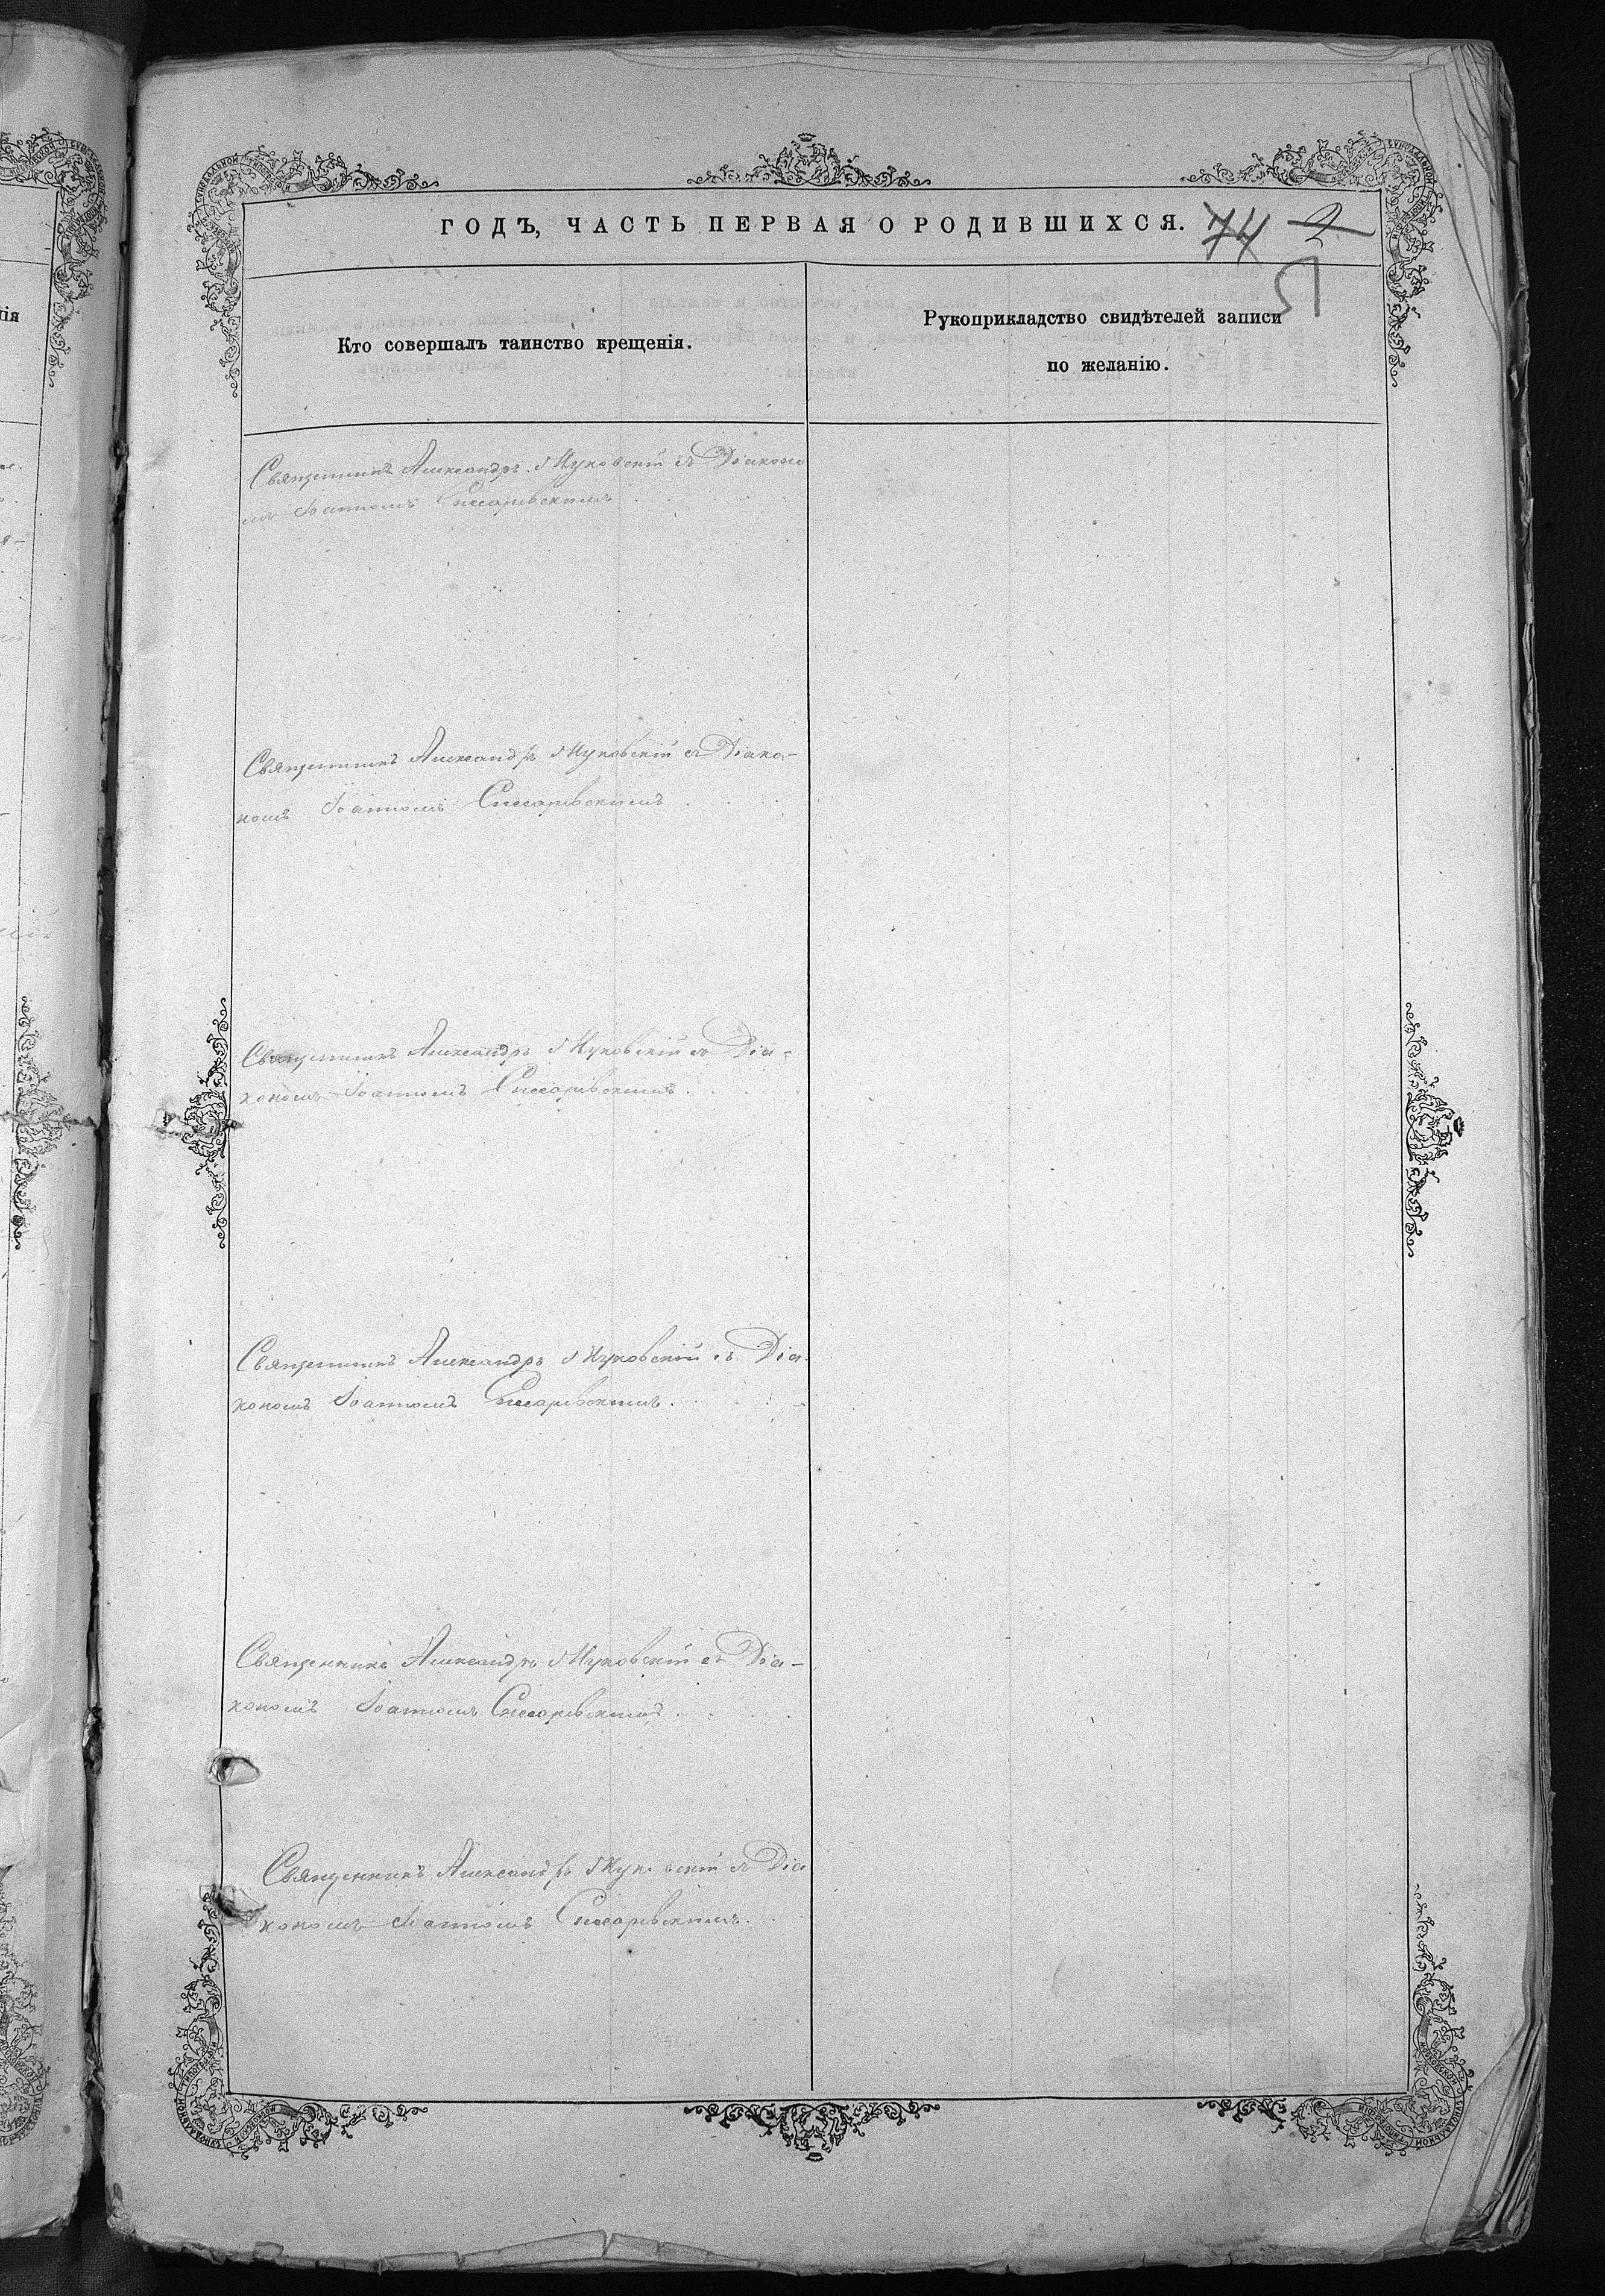 ГОДЪ, ЧАСТЬ ПЕРВАЯ О РОДИВШИХСЯ. 74 2
51
Кто совершалъ таинство крещенія.
Рукоприкладство свидѣтелей записи
по желанію.
Священникъ Александръ Жуковскій съ Діаконо
мъ Іоанномъ
Священникъ Александръ Жуковскій съ Діако-
номъ Іоанномъ
Священникъ Александръ Жуковскій съ Діа-
кономъ Іоанномъ
Священникъ Александръ Жуковскій съ Діа
кономъ Іоанномъ
Священникъ Александръ Жуковскій съ Діа-
кономъ Іоанномъ
Священникъ Александръ Жуковскій съ Діа
кономъ Іоанномъ